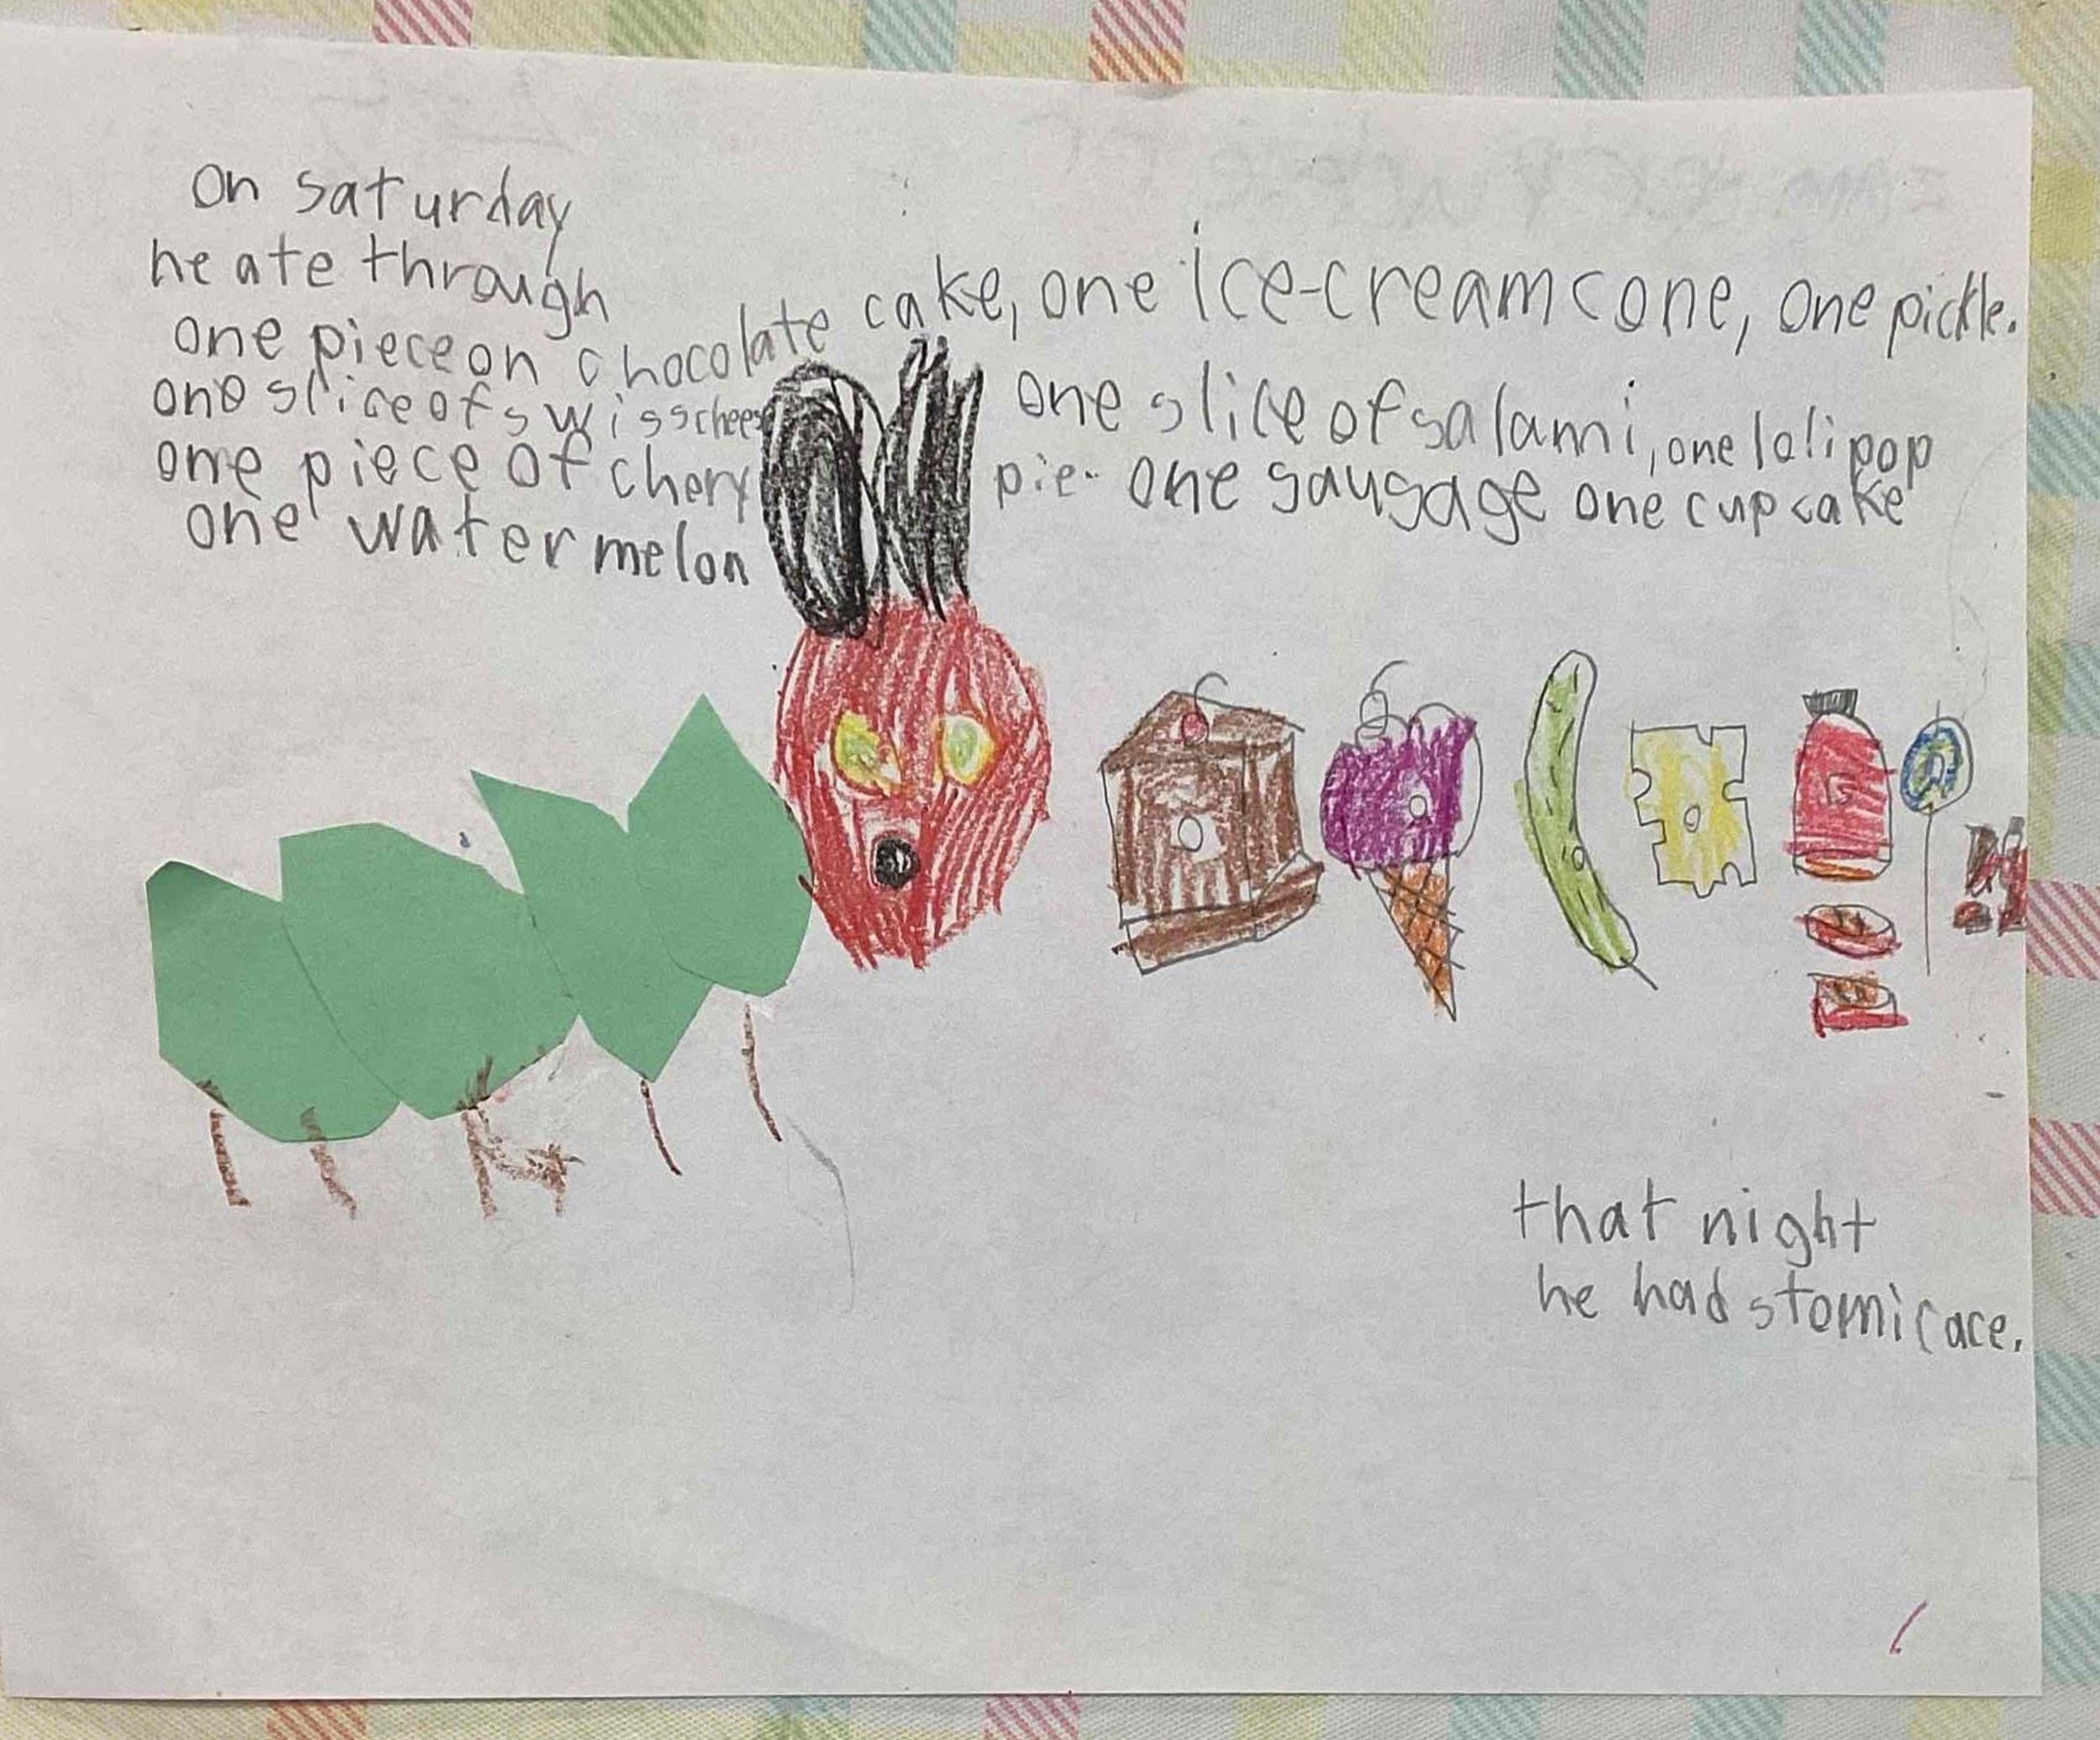 on saturday
he ate through
one piece on chocolate cake, one ice-cream cone, one pickle.
one slice of swiss cheese one slice of salami, one lolipop
one piece of chery pie- one sausage one cupcake
one watermelon
that night
he had stomicace.